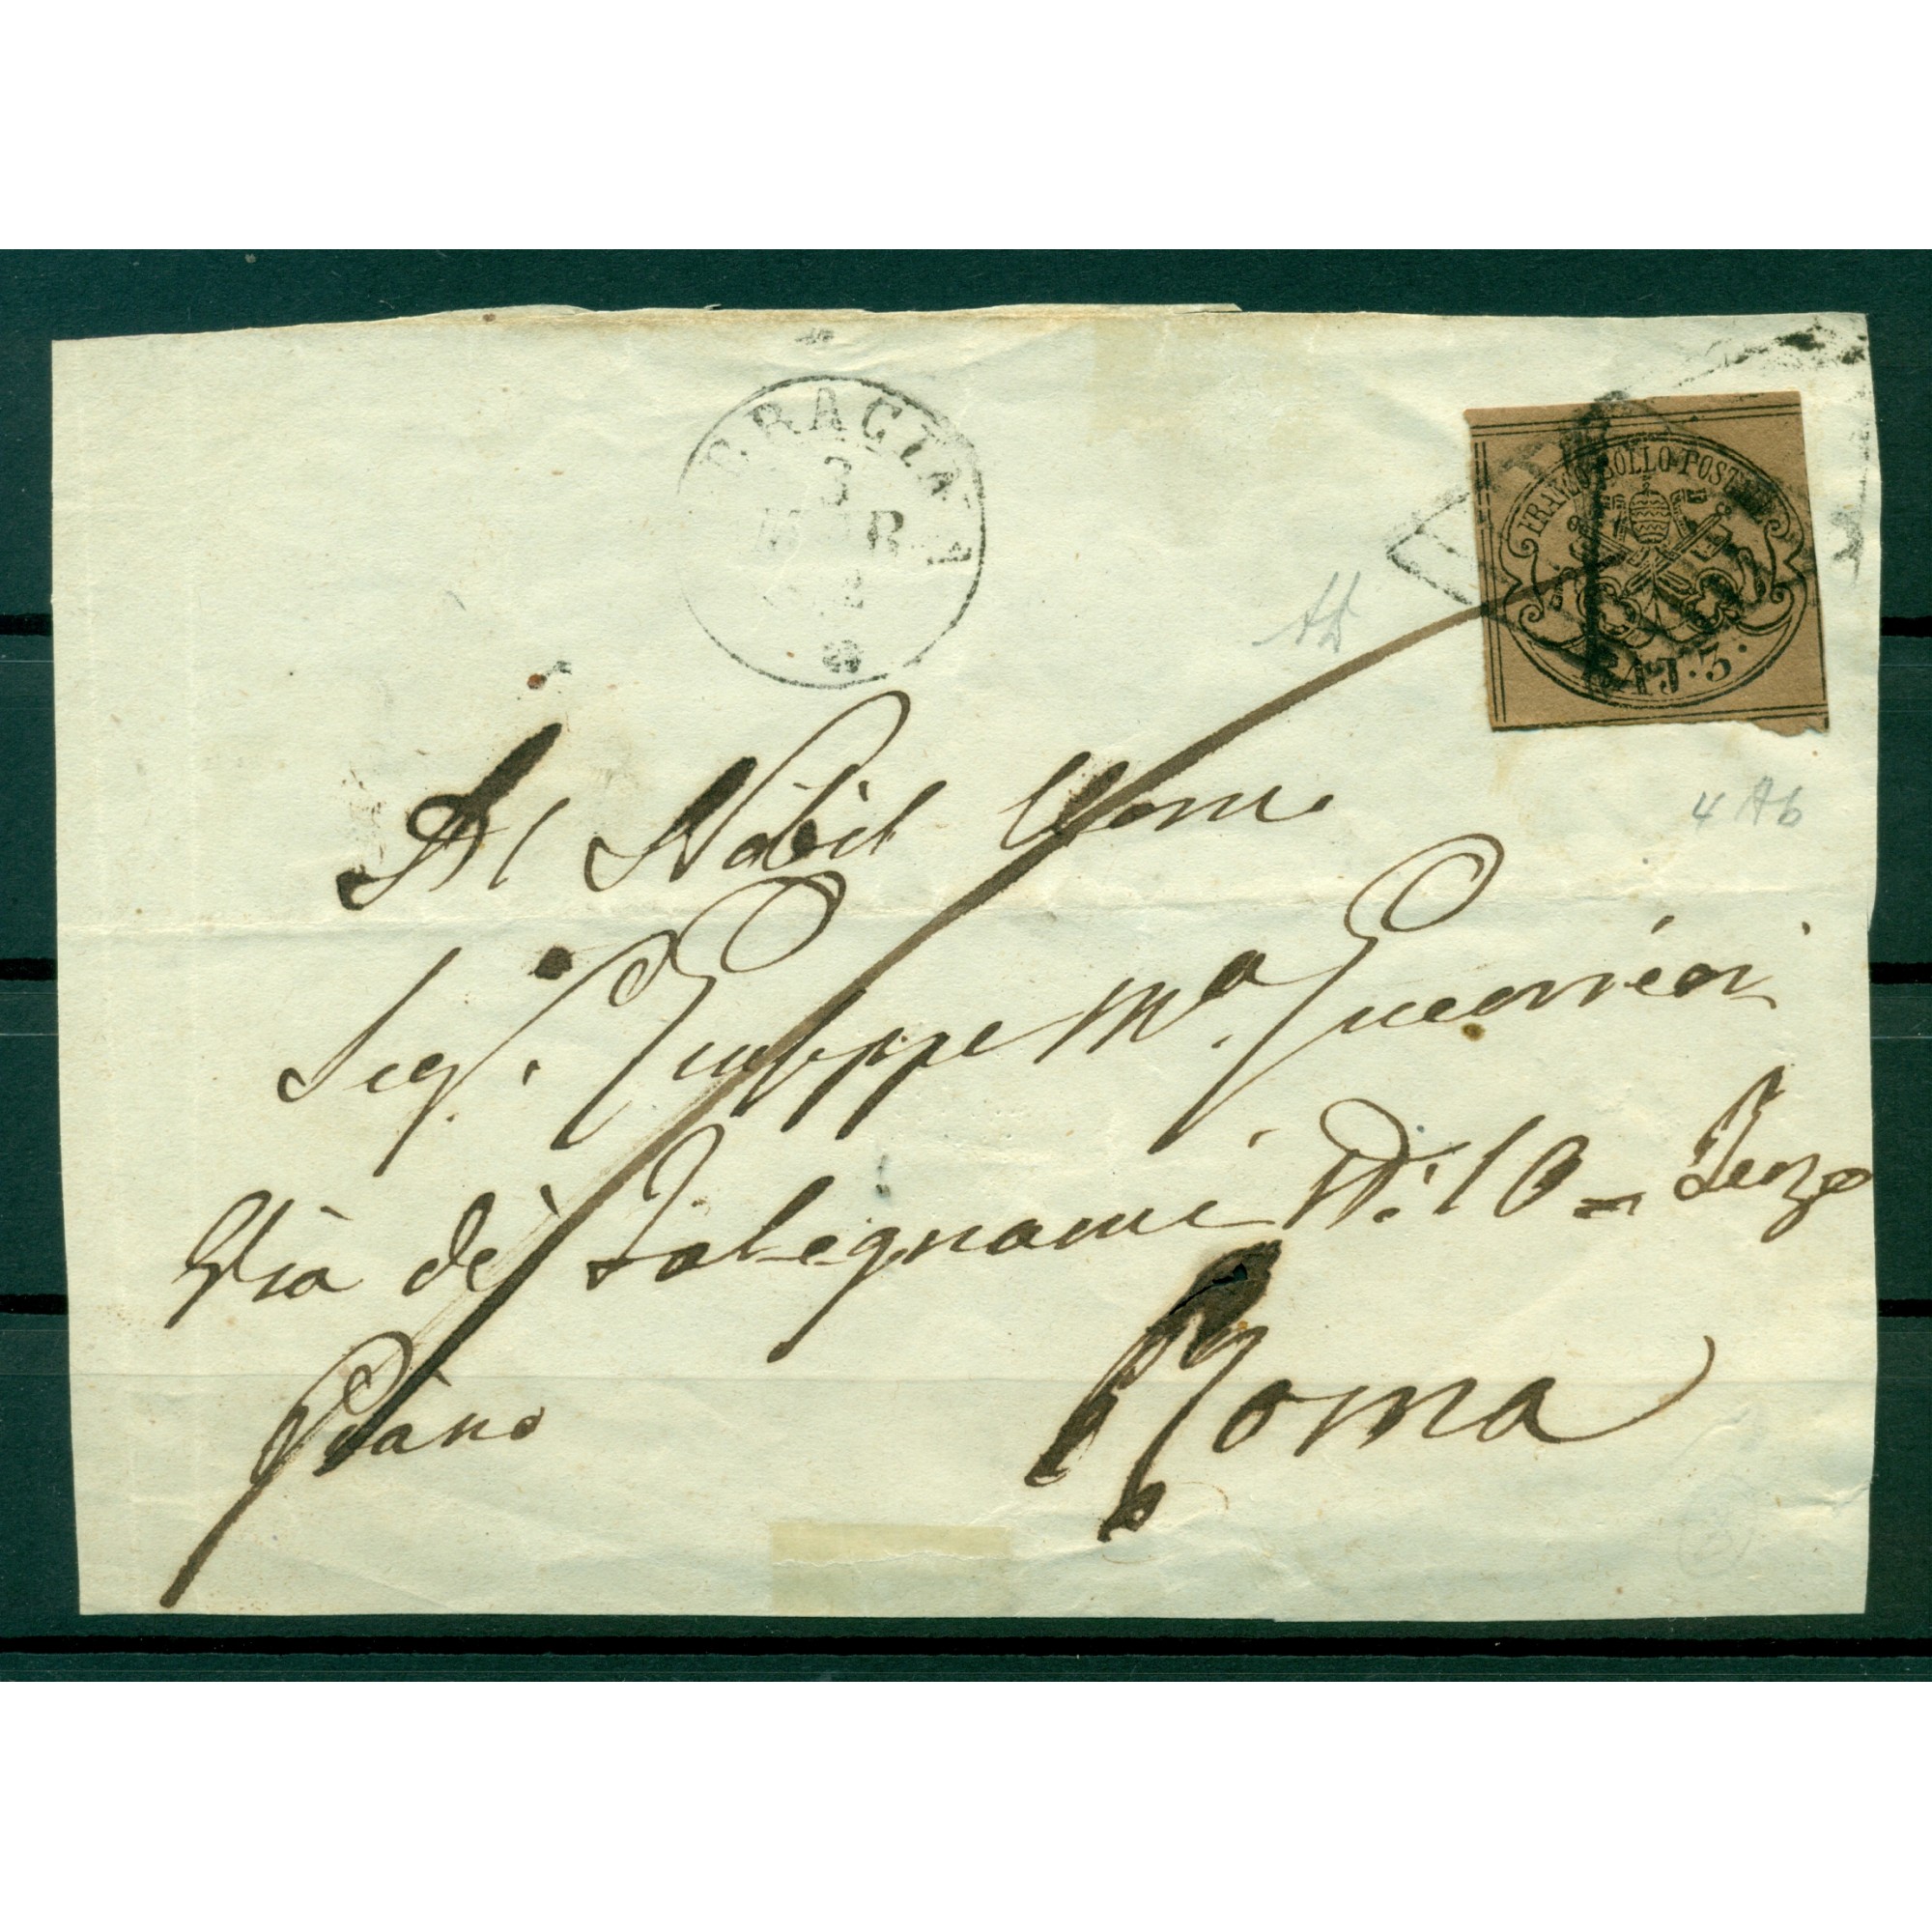 BRACCIAN
3
MAR
FRANCO BOLLO POSTALE
BAJ. 3.
4 Ab
Al Nobil Uomo
Sigr. Giuseppe Ma. Guerrieri
Via de' Falegnami N: 10 = Terzo
Piano
Roma